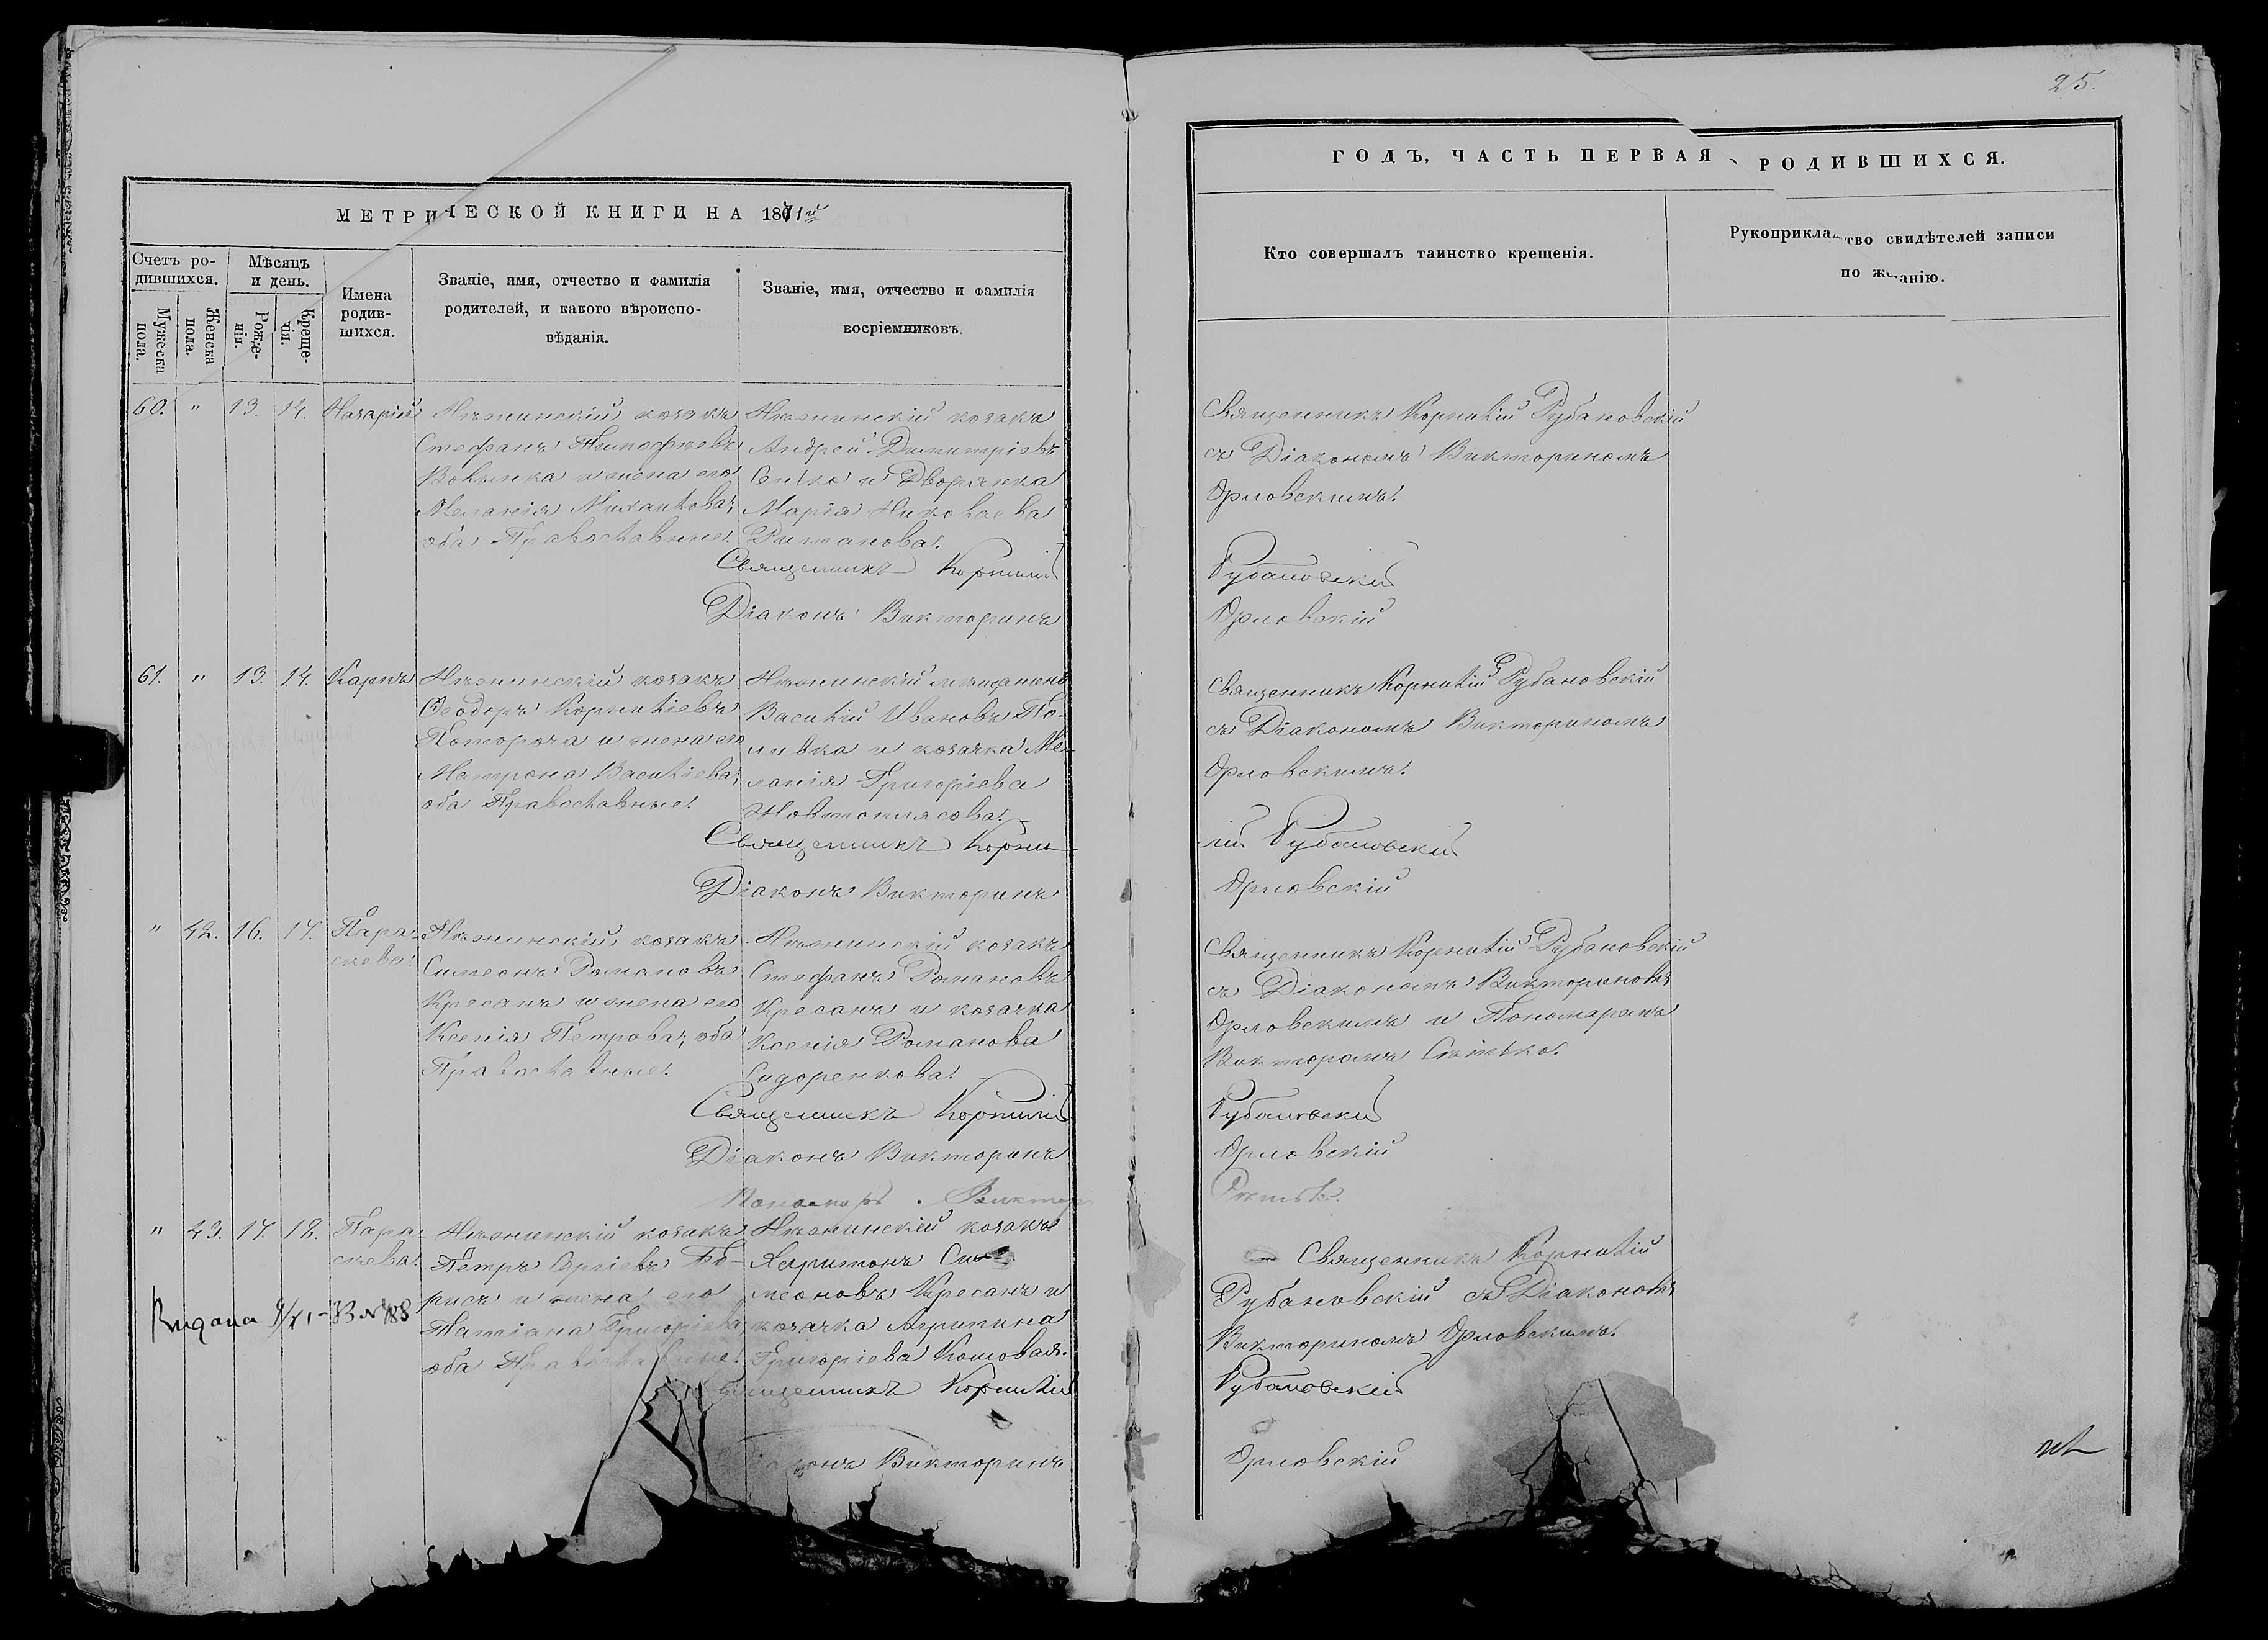 25.
МЕТРИЧЕСКОЙ КНИГИ НА 1871й
ГОДЪ, ЧАСТЬ ПЕРВАЯ, РОДИВШИХСЯ.
Счетъ ро-
дившихся.
Мужеска пола.
Женска пола.
Мѣсяцъ
и день.
Рожде-
нія.
Креще-
нія.
Имена
родив-
шихся.
Званіе, имя, отчество и фамилія
родителей, и какого вѣроиспо-
вѣданія.
Званіе, имя, отчество и фамилія
воспріемниковъ.
Кто совершалъ таинство крещенія.
Рукоприкладство свидѣтелей записи
по желанію.
60. " 13. 14. Назарій
Нѣжинскій козакъ
Стефанъ Тимофѣевъ
и жена его
Меланія Михаилова;
оба Православные.
Нѣжинскій козакъ
Андрей Димитріевъ
и Дворянка
Марія Николаева
Священникъ Корнилій
Діаконъ Викторинъ
Священникъ Корнилій Рубановскій
съ Діакономъ Викториномъ
Орловскимъ.
Рубановскій
Орловскій
61. " 13. 14. Карпъ
Нѣжинскій козакъ
Ѳеодоръ Корниліевъ
и жена его
Матрона Василіева;
оба Православные.
Нѣжинскій мѣщанинъ
Василій Ивановъ По-
ливка и козачка Ме-
ланія Григоріева
Священникъ Корни-
Діаконъ Викторинъ
Священникъ Корнилій Рубановскій
съ Діакономъ Викториномъ
Орловскимъ.
лій Рубановскій
Орловскій
" 42. 16. 17. Пара-
скева.
Нѣжинскій козакъ
Симеонъ Романовъ
Кресанъ и жена его
Ксенія Петрова; оба
Православные.
Нѣжинскій козакъ
Стефанъ Романовъ
Кресанъ и козачка
Ксенія Романова
Сидоренкова.
Священникъ Корнилій
Діаконъ Викторинъ
Пономарь Виктор
Священникъ Корнилій Рубановскій
съ Діакономъ Викториномъ
Орловскимъ и Пономаремъ
Викторомъ
Рубановскій
Орловскій
" 43. 17. 18. Пара-
скева.
Нѣжинскій козакъ
Петръ Сергіевъ Бо-
рисъ и жена его
Татіана Григоріева
оба Православные.
Нѣжинскій козакъ
Харитонъ Си-
меоновъ Кресанъ и
козачка Агрипина
Григоріева Кошовая.
Священникъ Корнилій
Діаконъ Викторинъ
Священникъ Корнилій
Рубановскій съ Діакономъ
Викториномъ Орловскимъ.
Рубановскій
Орловскій